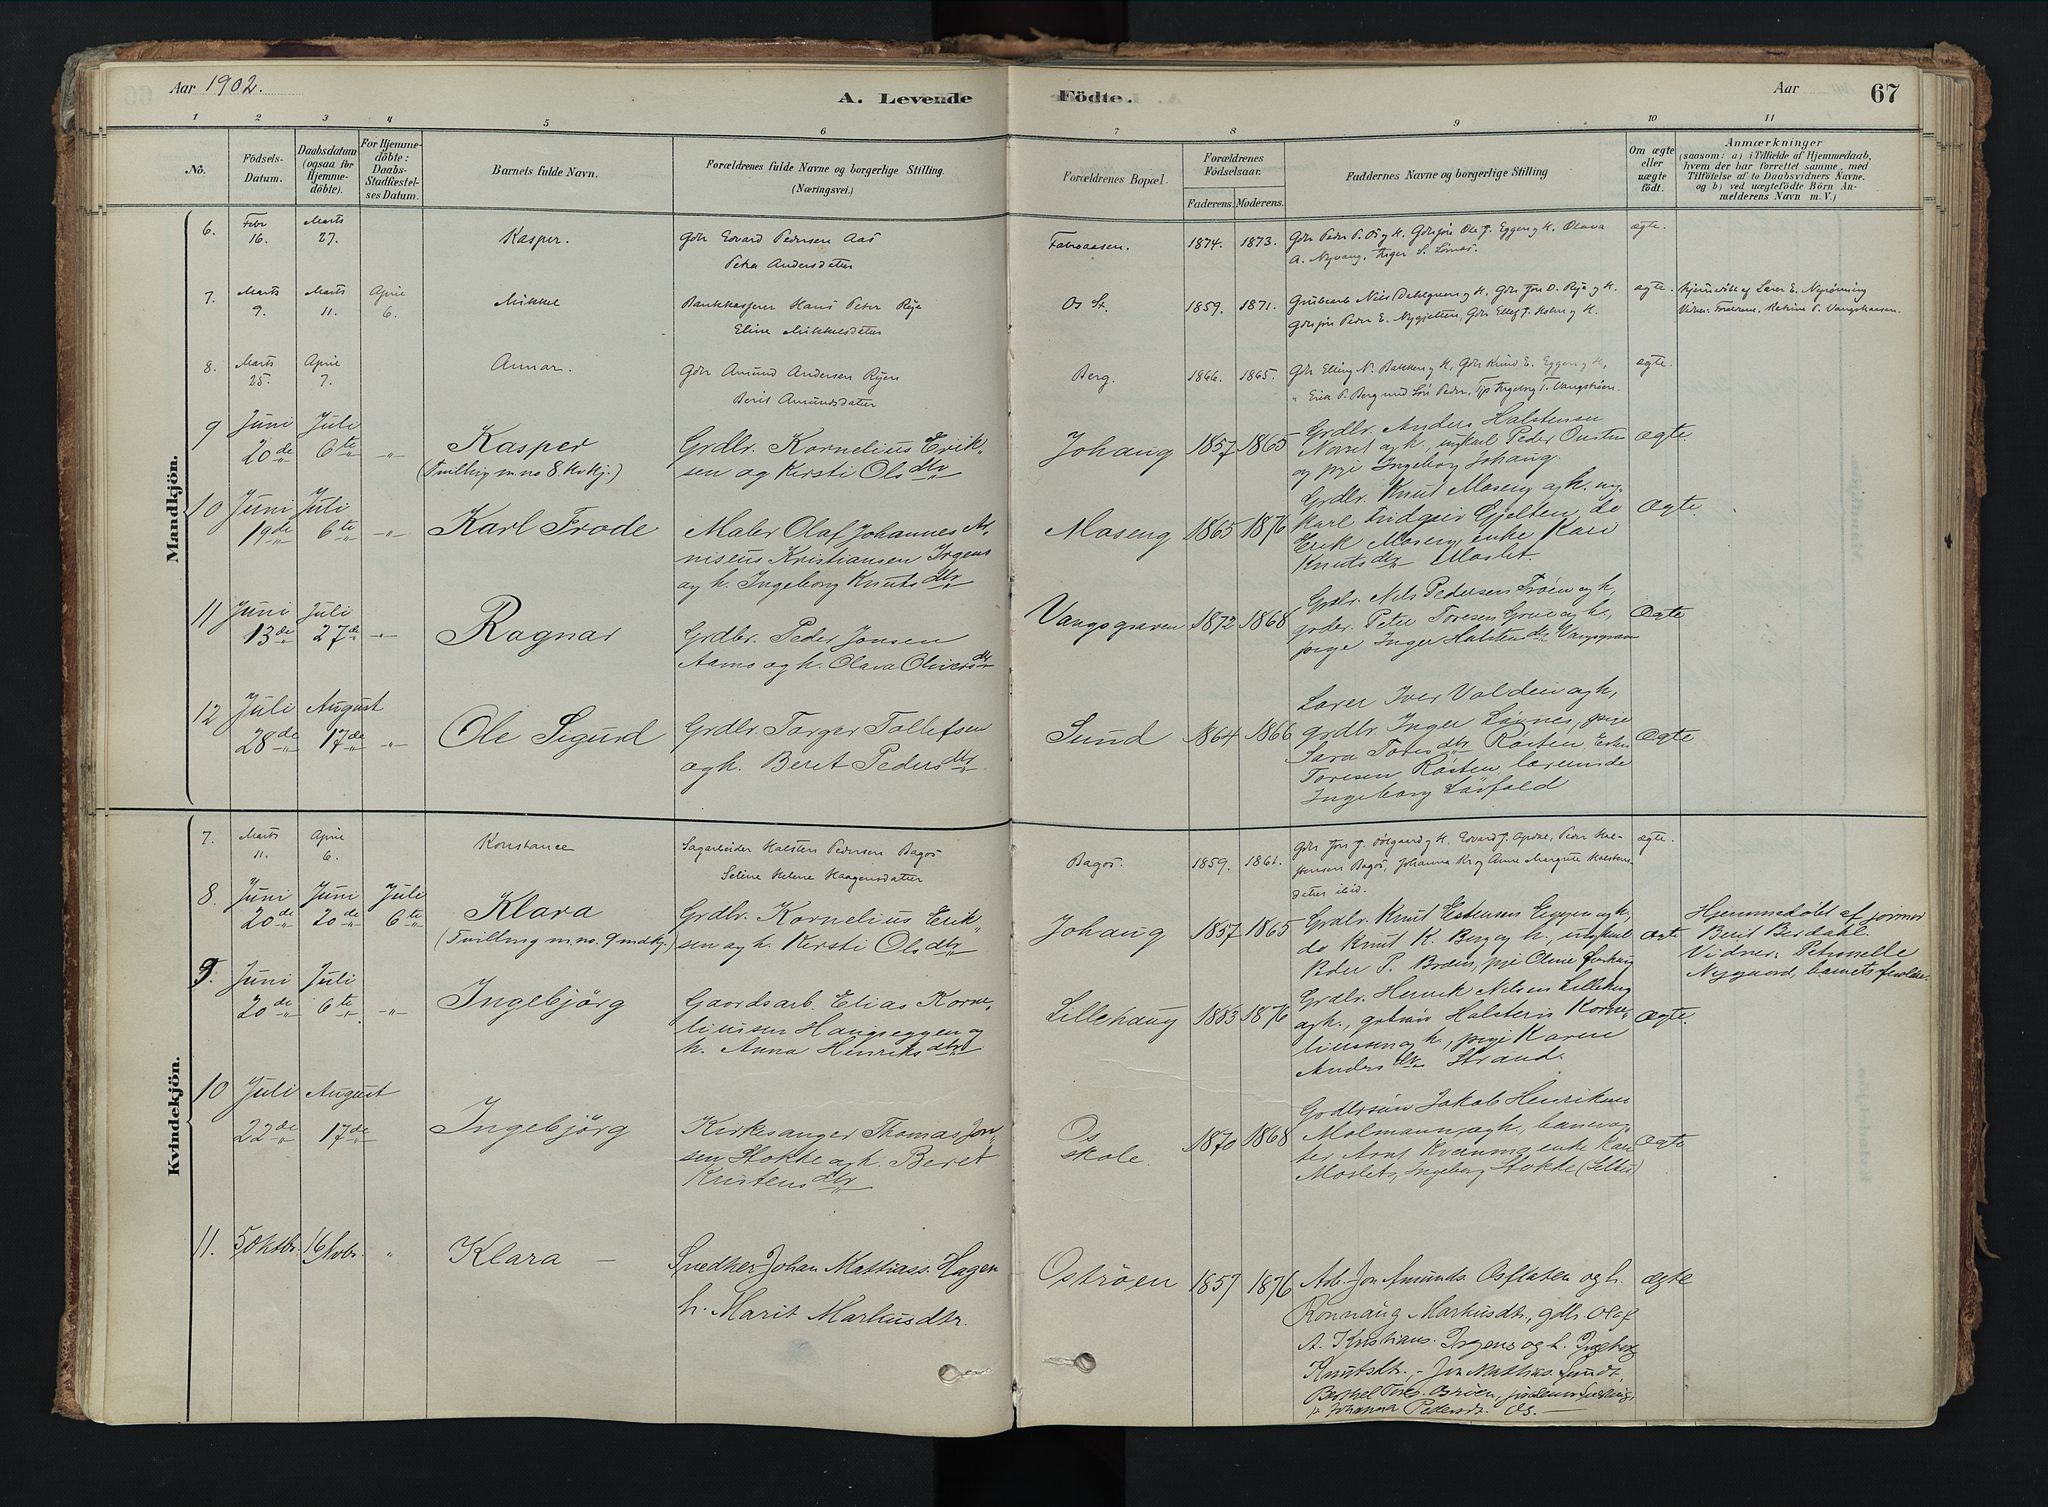 Aar 1902.
A. Levende
Födte.
Aar
67
1 2 3 4 5 6 7 8 9 10 11
No.
Födsels-
Datum.
Daabsdatum
(ogsaa før
Hjemme-
döbte).
For Hjemme-
döbte:
Daabs-
Stadfæstel-
ses Datum.
Barnets fulde Navn.
Forældrenes fulde Navne og borgerlige Stilling.
(Næringsvei.)
Forældrenes Bopæl.
Forældrenes
Födselsaar.
Faderens. Moderens.
Faddernes Navne og borgerlige Stilling
Om ægte
eller
uægte
födt.
Anmærkninger
(saasom: a) i Tilfælde af Hjemmedaab,
hvem der har forrettet samme, med
Tilföielse af to Daabsvidners Navne.
og b) ved uægtefödte Börn An-
melderens Navn m. V.)
Mandkjön.
6. Febr 16. Marts 27. Kasper.
Gdr Edvard Pedersen Aas
Petra Andersdatter
1874. 1873.
Gdr Peder P. Os y K. Gdrsøn Ole J. Eggen y K. Olava
A. Nyvang. Inger S. Lörnes.
ægte.
7. Marts 9. Marts 11. April 6. Mikkel
Bankkasserer Hans Peter Rye
Eline Mikkelsdatter
Os St. 1859. 1871.
Grubearb Nils Dahlgren y K. Gdr Jon D. Rye y K.
Gdrsøn Peder E. Nygjelten, Gdr Ellef J. Holm y K.
ægte.
Hjemdöbt af Lærer E. Nyrønning
Vidner: Forældrene, Katrine P. Vangskaasen.
8. Marts 25. April 7. Annar.
Gdr Amund Andersen Ryen
Berit Amundsdatter
Berg. 1866. 1865.
Gdr Elling N. Bakken y K, Gdr Knud E. Eggen y K,
" Erik P. Berg med Sös Peder, Tjp Ingebrg T. Vangströen.
ægte.
9 Juni 20de Juli 6te Kasper
(Tvilling m. no 8 Kvkj.)
Grdbr. Kornelius Erik-
sen og Kirsti Olsdtr
Johaug 1857 1865
Grdbr. Anders Halstensen
Norset og h., ungkarl Peder Ousten
og pige Ingeborg Johaug.
ægte
10 Juni 19de Juli 6te Karl Frode
Maler Olaf Johannes A-
niseus Kristiansen Irgens
og h. Ingeborg Knutsdtr
Moseng 1865 1876
Grdbr. Knut Moseng og h. ung-
karl Fridgeir Gjelten, do
Erik Moseng, enke Kari
Knutsdtr Moslet.
Ægte.
11 Juni 13de Juli 27de Ragnar
Grdbr. Peder Jonsen
Aamo og h. Olava Oliversdtr
Vangsgraven 1872 1868
Grdbr. Nils Pedersen Tröen og h,
grdbr. Peter Toresen Grue og h.,
pige Inger Halstensdtr Vangsgraven
Ægte
12 Juli 28de August 17de Ole Sigurd
Grdbr. Torger Tollefsen
og h. Beret Pedersdtr
Sund 1864 1866
Lærer Iver Volden og h,
grdbr. Inger Lövnes, pige
Sara Toresdtr Røsten, Esten
Toresen Røsten, lærerinde
Ingeborg Lövfald
Ægte
Kvindekjön.
7. Marts 11. April 6. Konstance
Sagarbeider Halsten Pedersen Bagös
Seline Helene Haagensdatter
Bagös. 1859. 1861.
Gdr Jon J. Sörgaard y K. Edvard J. Opdal, Peder Hal-
stensen Bagös, Johanna Kr og Anne Margrete Halstens-
datter ibid.
ægte.
8. Juni 20de Juni 20de Juli 6te Klara
(Tvilling m. no. 9 mdkj.)
Grdbr. Kornelius Erik-
sen og h. Kirsti Olsdtr
Johaug 1857 1865
Grdbr. Knut Estensen Eggen og h,
do Knut K. Berg og h., ungkarl
Peder P. Broen, pige Oline Johaug
ægte
Hjemmedöbt af jormor
Berit Berdahl.
Vidner: Petronelle
Nygaard, barnets forældre.
9. Juni 20de Juli 6te Ingebjörg
Gaardsarb. Elias Korne-
liussen Haugseggen og
h. Anna Henriksdtr
Lillehaug 1883 1876
Grdbr. Henrik Nilsen Lillehaug
og h., grdbrsön Halsten Korne-
liussen og h., pige Karen
Andersdtr Strand.
Ægte.
10 Juli 22de August 17de Ingebjörg
Kirkesanger Thomas Jon-
sen Stokke og h. Beret
Kristensdtr
Os
skole. 1870 1868
Grdbrsön Jakob Henriksen
Molmann og h., banevog-
ter Arnt Kvernmo, enke Kari
Moslet, Ingeborg Stokke (Selbu)
Ægte
11. 5 Oktbr. 16 Novbr. " Klara –
Snedker Johan Mattiass. Hagen
h. Marit Markusdtr.
Oströen 1857 1876
Arb. Jon Amunds. Osflaten og h.
Ronnaug Markusdtr., gdbr. Olaf
A. Kristians. Irgens og h. Ingeborg
Knutsdtr., – Jon Mathias. Sundt,
Berthel Tors. Oströen,
p. Johanna Pedersdtr. Os. –
ægte